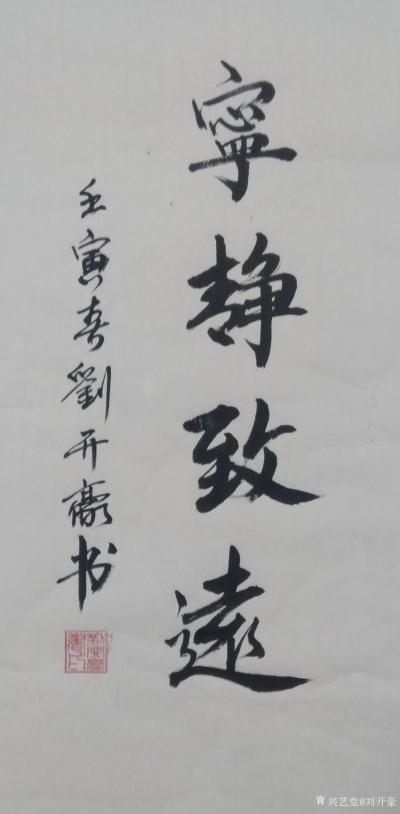 寧静致遠
壬寅春劉开豪书
兴艺堂@刘开豪